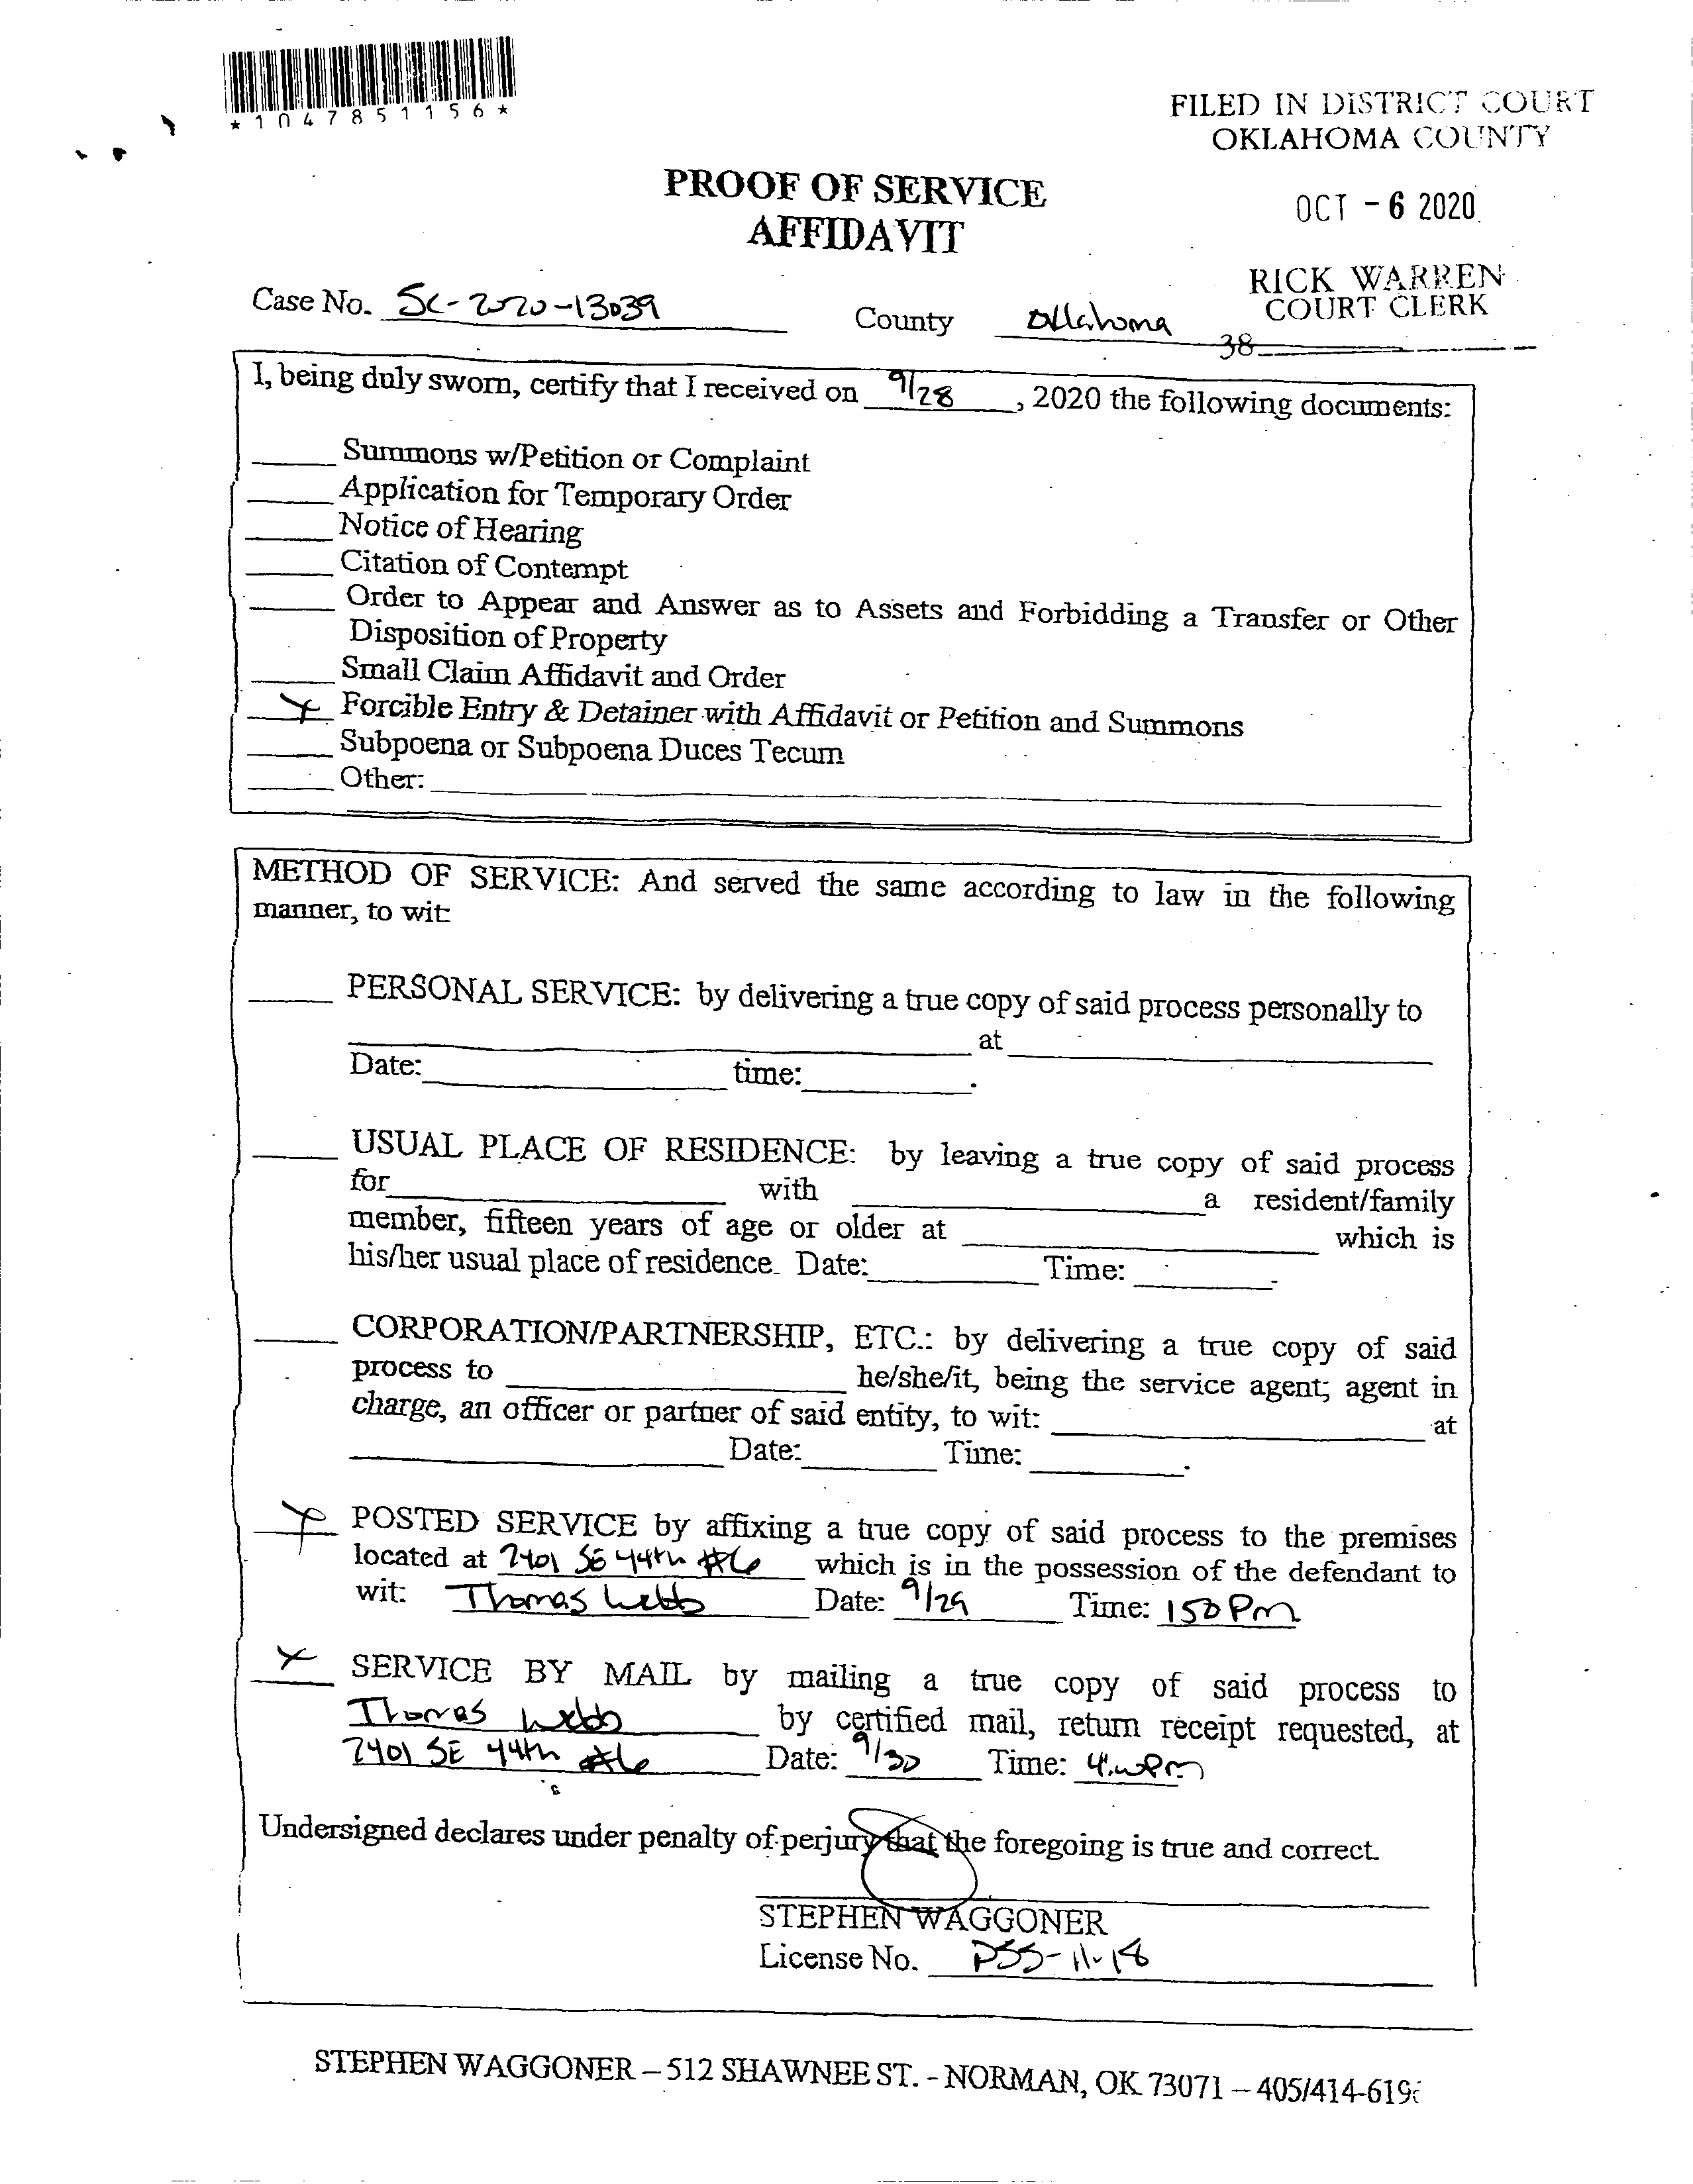 *1047851156*
FILED IN DISTRICT COURT
OKLAHOMA COUNTY
OCT - 6 2020
RICK WARREN
COURT CLERK
38
PROOF OF SERVICE
AFFIDAVIT
Case No. SC-2020-13039 County Oklahoma
I, being duly sworn, certify that I received on 9/28, 2020 the following documents:
Summons w/Petition or Complaint
Application for Temporary Order
Notice of Hearing
Citation of Contempt
Order to Appear and Answer as to Assets and Forbidding a Transfer or Other
Disposition of Property
Small Claim Affidavit and Order
X Forcible Entry & Detainer with Affidavit or Petition and Summons
Subpoena or Subpoena Duces Tecum
Other:
METHOD OF SERVICE: And served the same according to law in the following
manner, to wit:
PERSONAL SERVICE: by delivering a true copy of said process personally to
at
Date: time: .
USUAL PLACE OF RESIDENCE: by leaving a true copy of said process
for with a resident/family
member, fifteen years of age or older at which is
his/her usual place of residence. Date: Time: .
CORPORATION/PARTNERSHIP, ETC.: by delivering a true copy of said
process to he/she/it, being the service agent; agent in
charge, an officer or partner of said entity, to wit: at
Date: Time: .
X POSTED SERVICE by affixing a true copy of said process to the premises
located at 7401 SE 44th #6 which is in the possession of the defendant to
wit: Thomas Webb Date: 9/29 Time: 150 PM
X SERVICE BY MAIL by mailing a true copy of said process to
Thomas Webb by certified mail, return receipt requested, at
7401 SE 44th #6 Date: 9/30 Time: 4:00 PM
Undersigned declares under penalty of perjury that the foregoing is true and correct.
STEPHEN WAGGONER
License No. PSS-11-18
STEPHEN WAGGONER – 512 SHAWNEE ST. - NORMAN, OK 73071 – 405/414-619